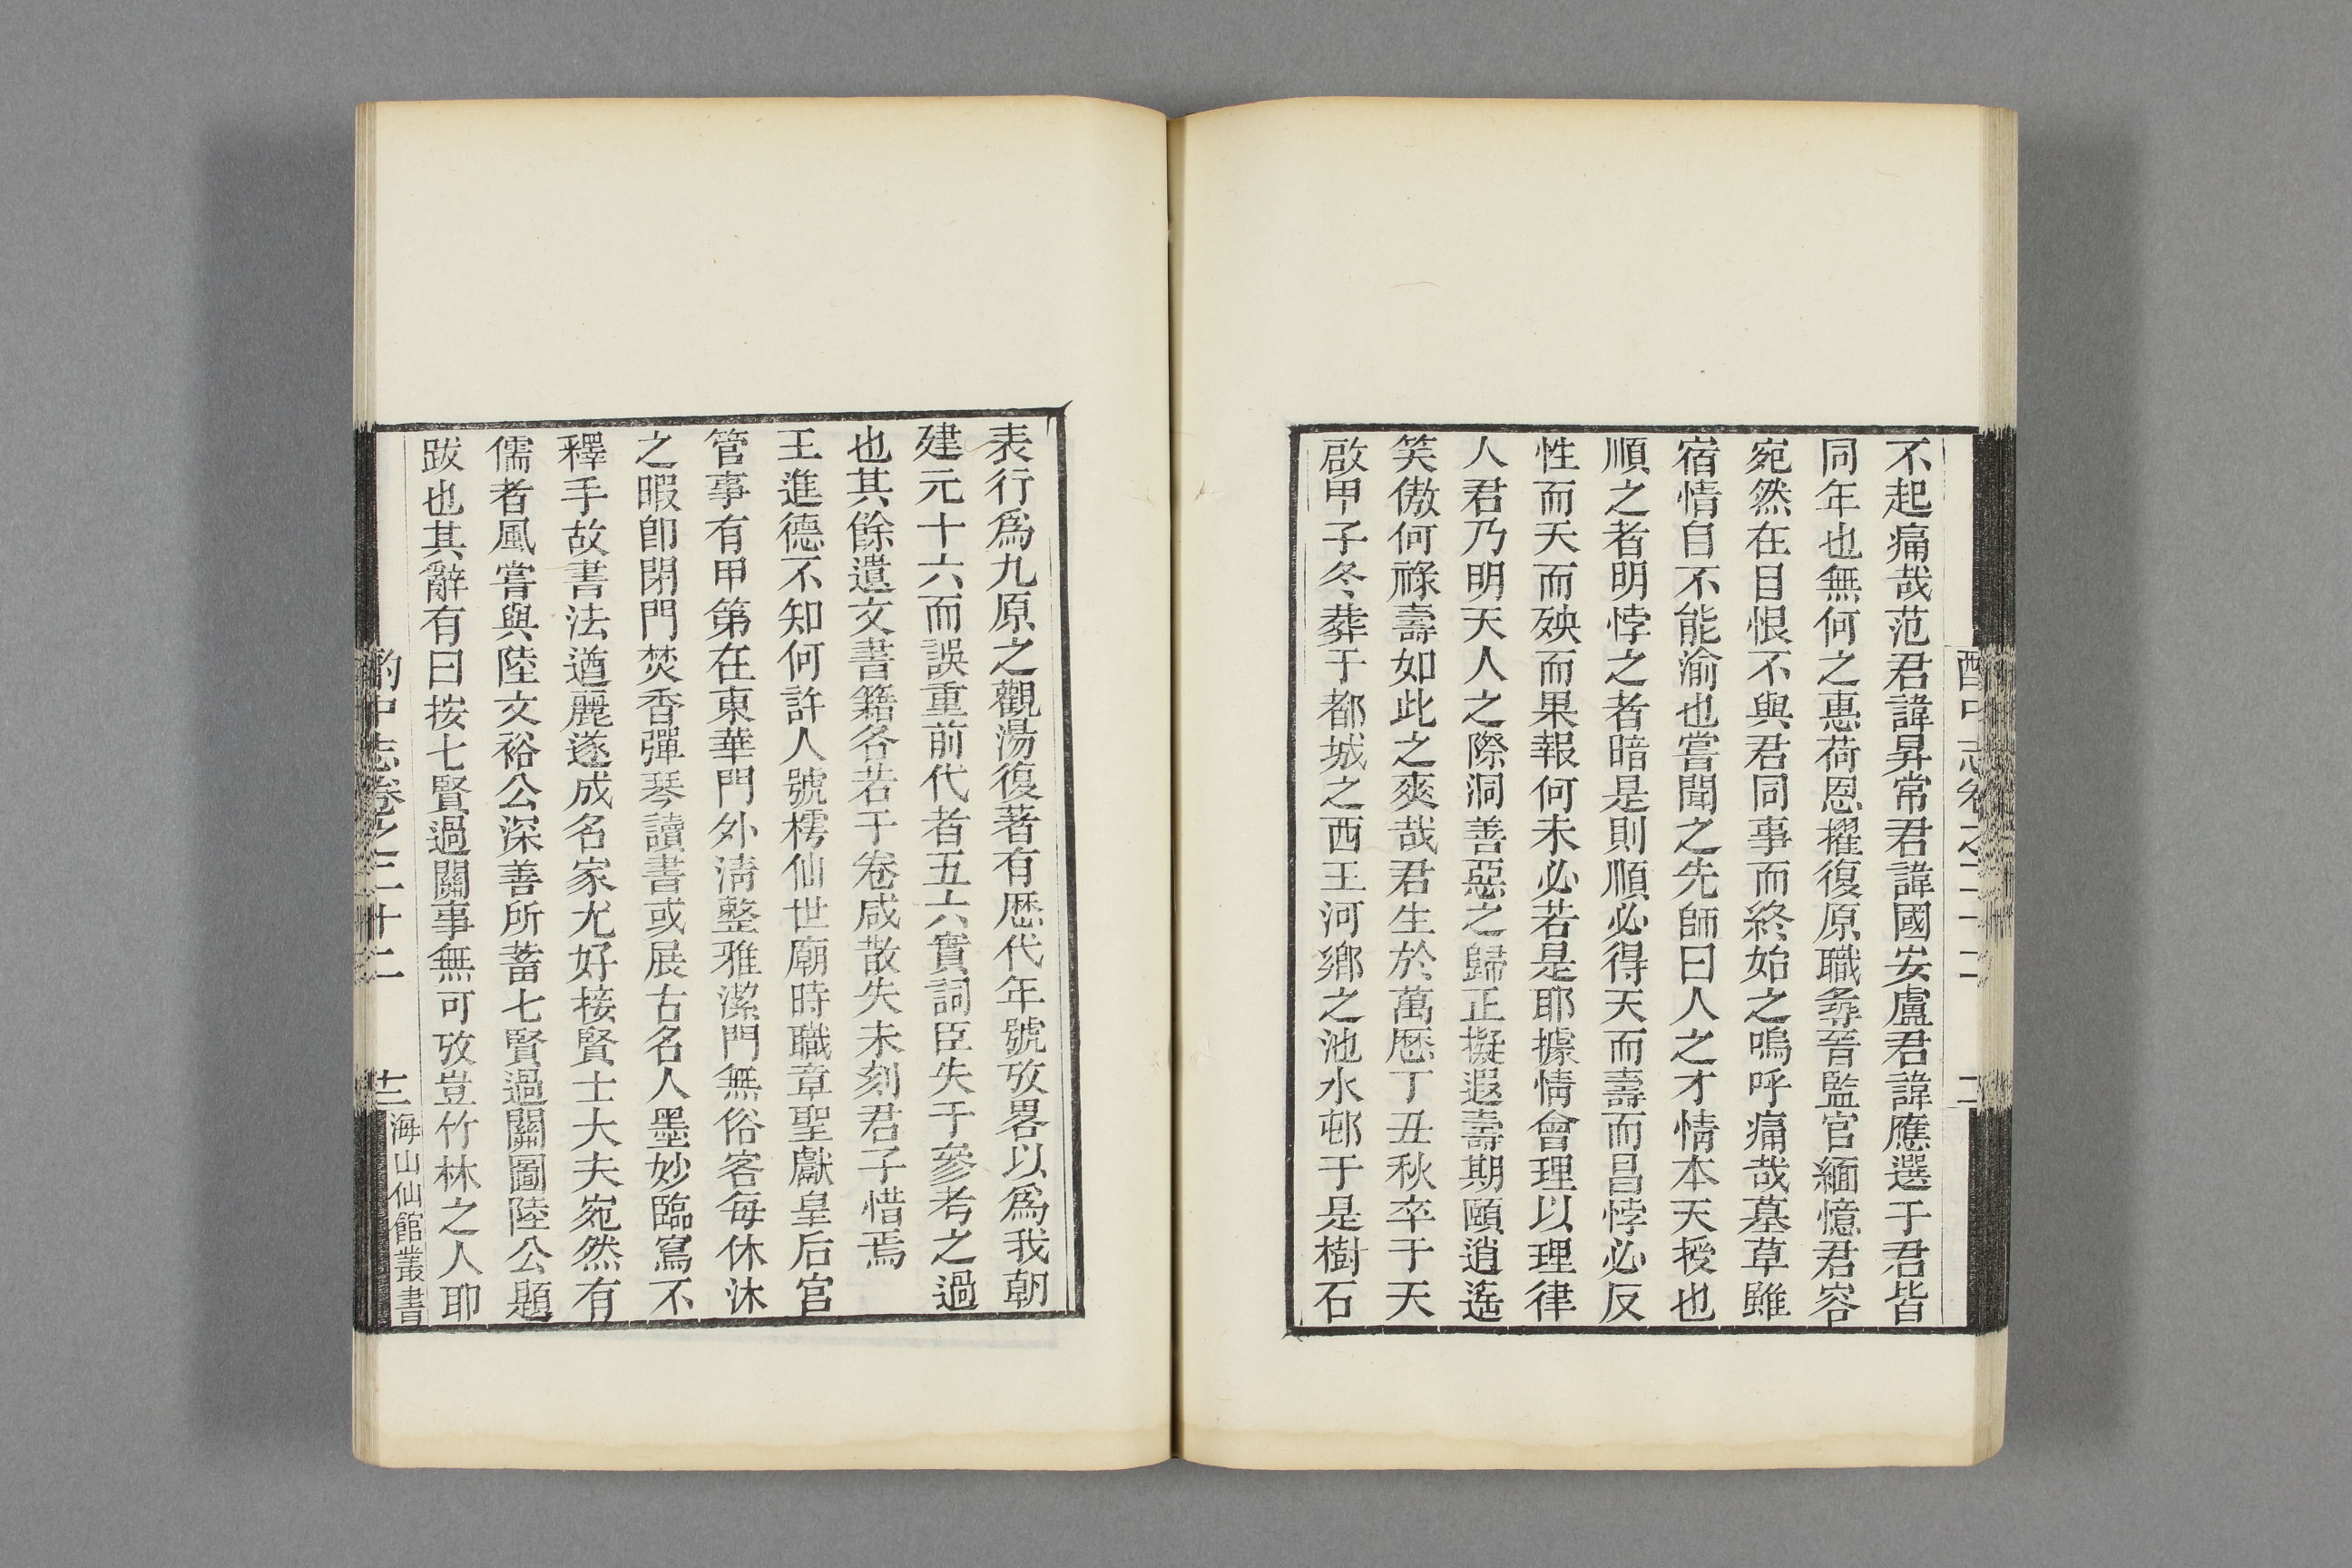 不起痛哉范君諱昇常君諱國安盧君諱應選于君皆
同年也無何之惠荷恩擢復原職尋晉監官緬憶君容
宛然在目恨不與君同事而終始之嗚呼痛哉墓草雖
宿情自不能渝也嘗聞之先師曰人之才情本天授也
順之者明悖之者暗是則順必得天而壽而昌悖必反
性而夭而殃而果報何未必若是耶據情會理以理律
人君乃明天人之際洞善惡之歸正擬遐壽期頤逍遙
笑傲何祿壽如此之爽哉君生於萬歷丁丑秋卒于天
啟甲子冬葬于都城之西王河鄉之池水邨于是樹石
表行爲九原之觀湯復著有歷代年號攷畧以爲我朝
建元十六而誤重前代者五六實詞臣失于參考之過
也其餘遺文書籍各若干卷咸散失未刻君子惜焉
王進德不知何許人號樗仙世廟時職章聖獻皇后宮
管事有甲第在東華門外清整雅潔門無俗客每休沐
之暇卽閉門焚香彈琴讀書或展古名人墨妙臨寫不
釋手故書法遒麗遂成名家尤好接賢士大夫宛然有
儒者風嘗與陸文裕公深善所蓄七賢過關圖陸公題
跋也其辭有曰按七賢過關事無可攷豈竹林之人耶
酌中志卷之二十二
十二
海山仙館叢書